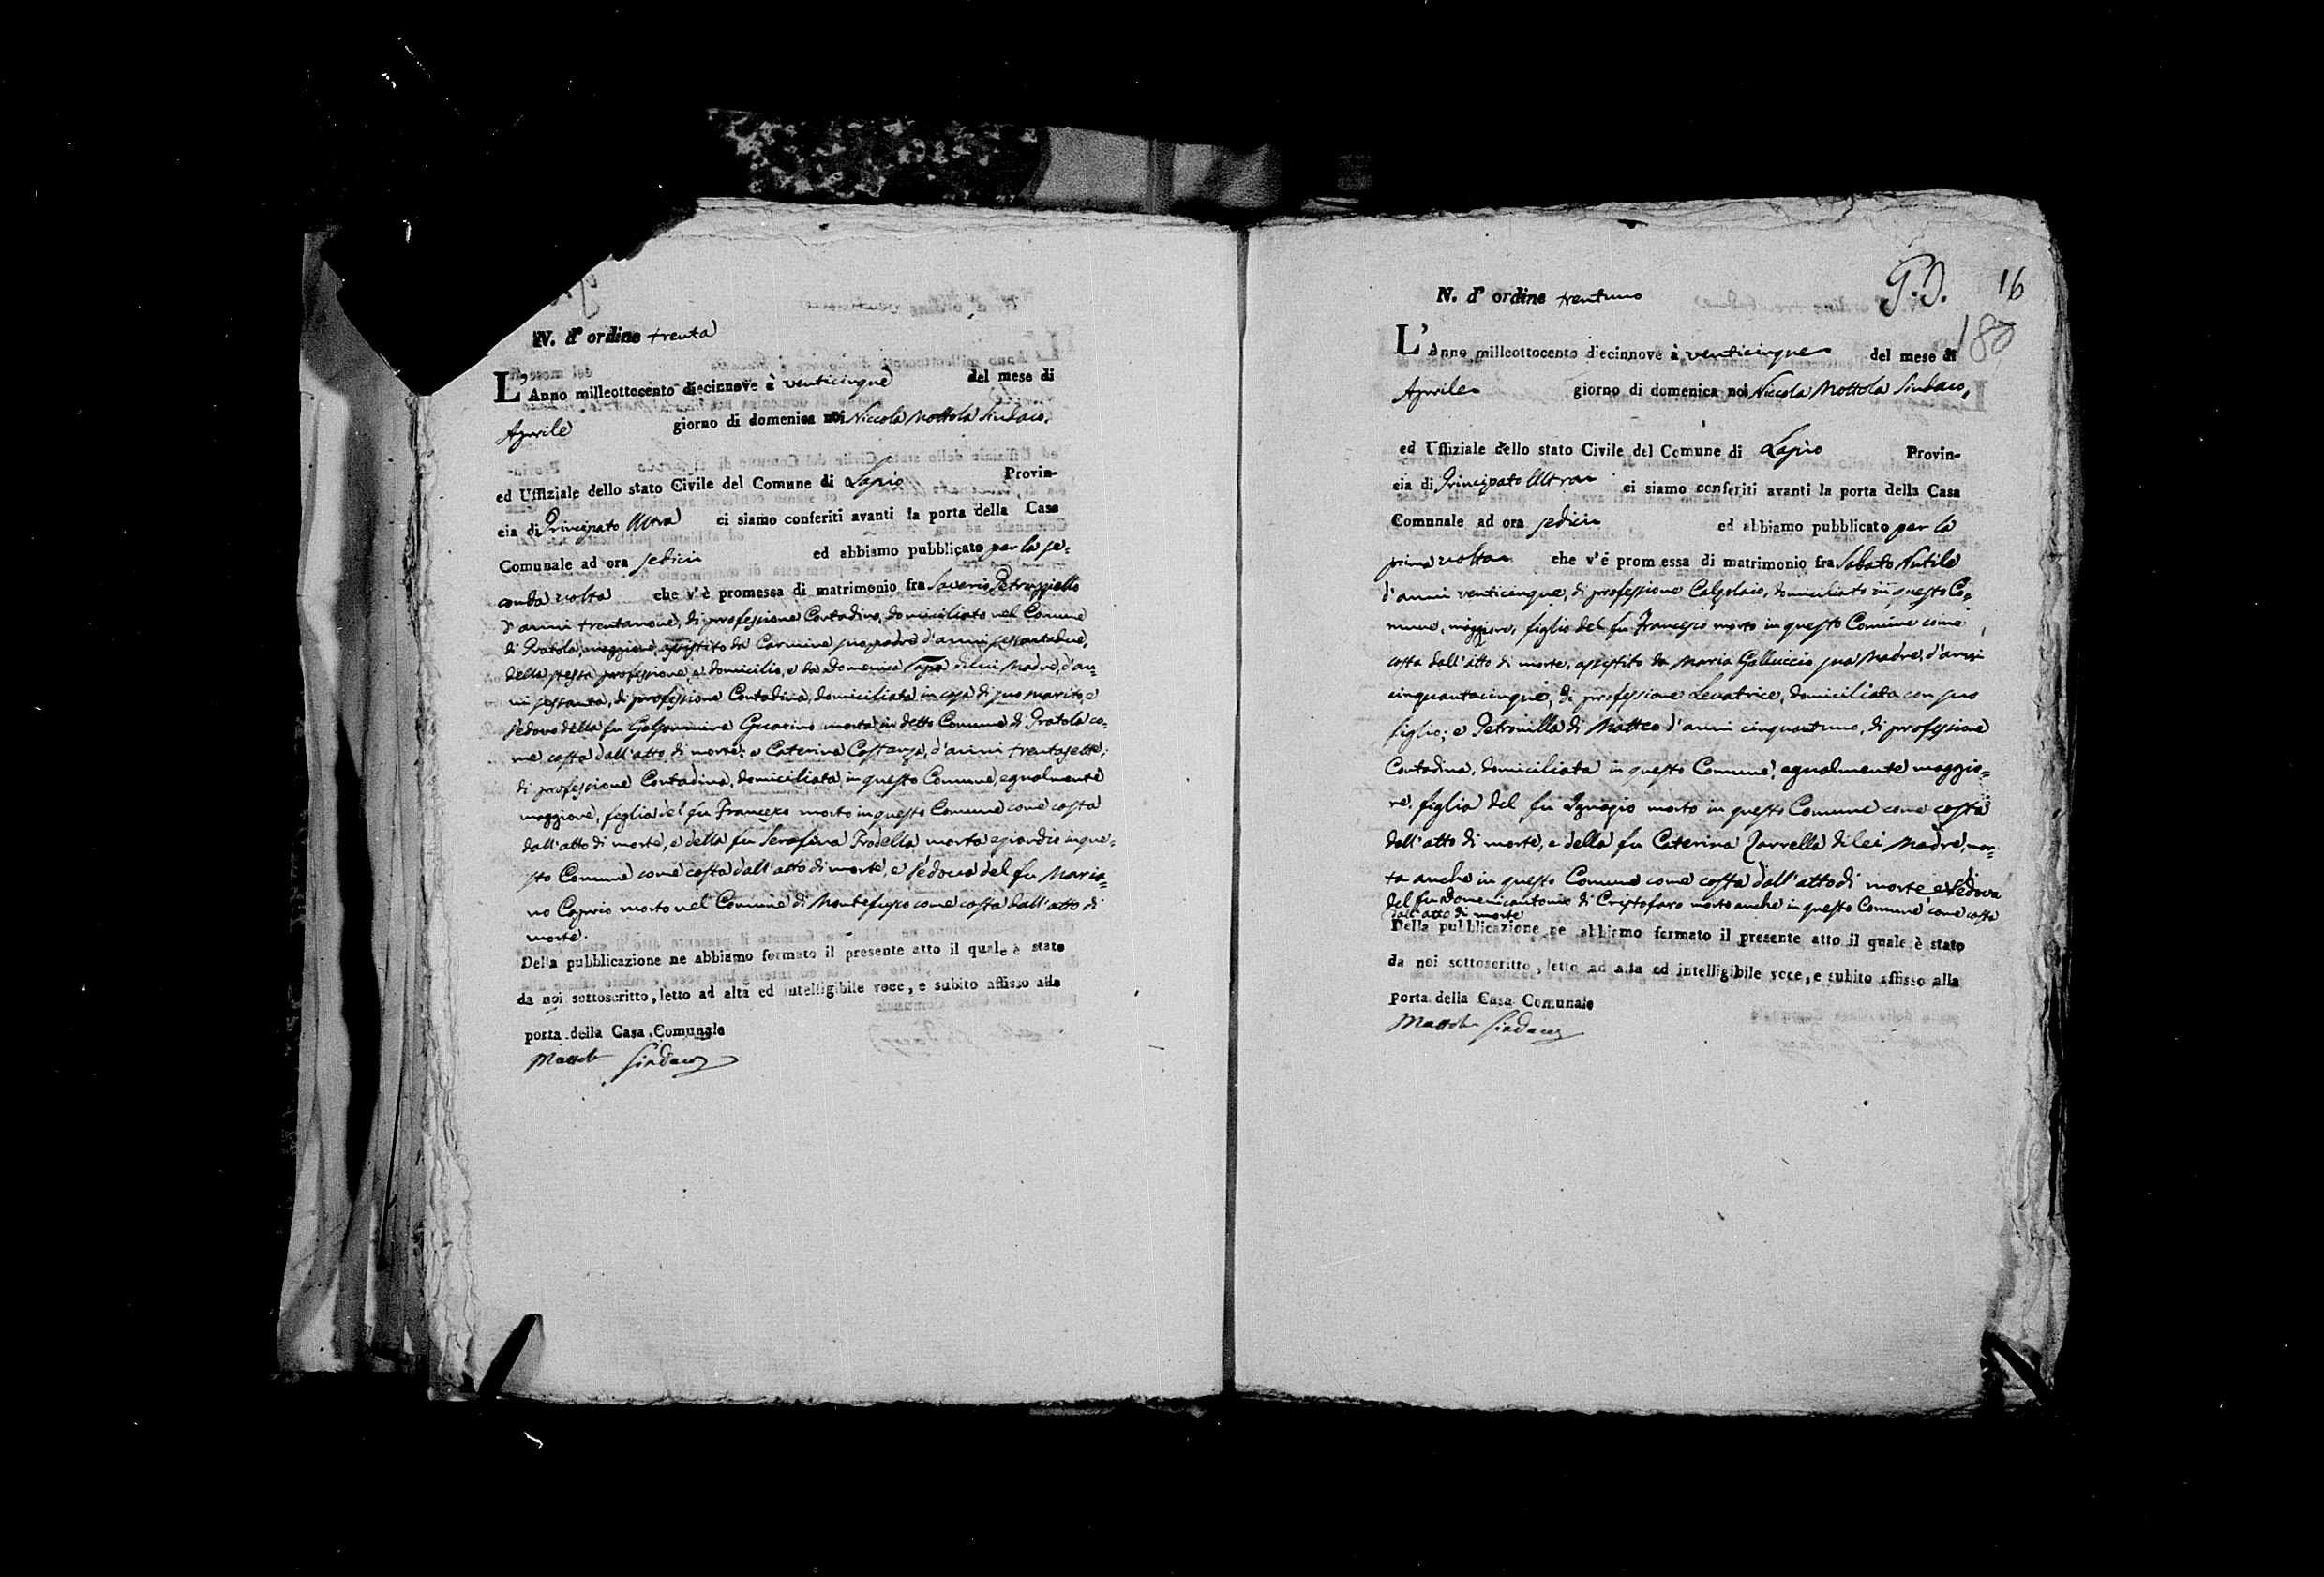 N. d' ordine trenta
L' Anno milleottocento diecinnove à venticinque del mese di
Aprile giorno di domenica noi Niccola Mottola Sindaco,
ed Uffiziale dello stato Civile del Comune di Lapio Provin-
cia di Principato Ultra ci siamo conferiti avanti la porta della Casa
Comunale ad ora sedici ed abbiamo pubblicato per la se=
conda volta che v'è promessa di matrimonio fra Saverio Petruzziello
d'anni trentanove, di professione Contadino, domiciliato nel Comune
di Pratola, maggiore, assistito da Carmine suo padre d'anni sessantadue,
della stessa professione, e domicilio, e da Domenica di lui Madre, d'an=
ni sessanta, di professione Contadina, domiciliata in casa di suo marito, e
Vedovo della fu Guarino morta in detto Comune di Pratola co=
me costa dall'atto di morte; e Caterina Costanza, d'anni trentasette,
di professione Contadina, domiciliata in questo Comune, egualmente
maggiore, figlia del fu Francesco morto in questo Comune come costa
dall'atto di morte, e della fu Serafina Prodella morta eziandio in que=
sto Comune come costa dall'atto di morte, e Vedova del fu Maria=
no Caprio morto nel Comune di Montefusco come costa dall'atto di
morte.
Della pubblicazione ne abbiamo formato il presente atto il quale è stato
da noi sottoscritto, letto ad alta ed intelligibile voce, e subito affisso alla
porta della Casa Comunale
Mottola Sindaco
P.D. 16
180
N. d' ordine trentuno
L' Anno milleottocento diecinnove à venticinque del mese di
Aprile giorno di domenica noi Niccola Mottola Sindaco,
ed Uffiziale dello stato Civile del Comune di Lapio Provin-
cia di Principato Ultra ci siamo conferiti avanti la porta della Casa
Comunale ad ora sedici ed abbiamo pubblicato per la
prima volta che v'é promessa di matrimonio fra Sabato Nutile
d'anni venticinque, di professione Calzolaio, domiciliato in questo Co=
mune, maggiore, figlio del fu Francesco morto in questo Comune come
costa dall'atto di morte, assistito da Maria Galluccio sua Madre, d'anni
cinquantacinque, di professione Levatrice, domiciliata con suo
figlio; e Petronilla di Matteo d'anni cinquantuno, di professione
Contadina, domiciliata in questo Comune, egualmente maggio=
re, figlia del fu Ignazio morto in questo Comune come costa
dall'atto di morte, e della fu Caterina Zarrella di lei Madre, mor=
ta anche in questo Comune come costa dall'atto di morte, e Vedova
del fu Domenicantonio di Cristofaro morto anche in questo Comune come costa
dall'atto di morte
Della pubblicazione ne abbiamo formato il presente atto il quale è stato
da noi sottoscritto, letto ad alta ed intelligibile voce, e subito affisso alla
porta della Casa Comunale
Mottola Sindaco